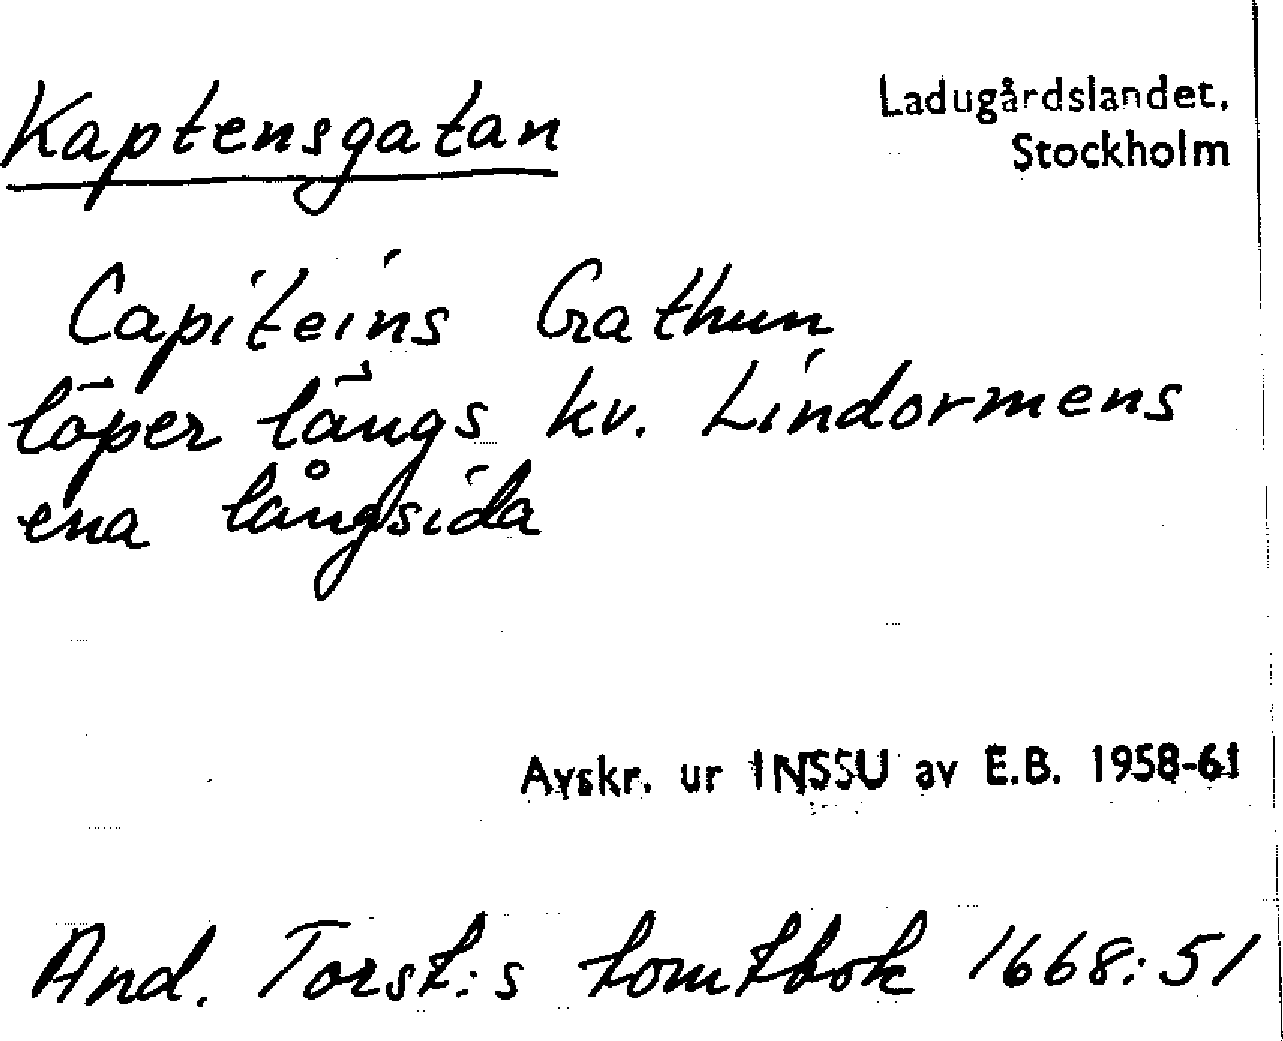 Kaptensgatan
Ladugårdslandet,
Stockholm
Capiteins Gathun
löper längs kv. Lindormens
ena långsida
Avskr. ur INSSU av E.B. 1958-61
And. Torst:s tomtbok 1668:51